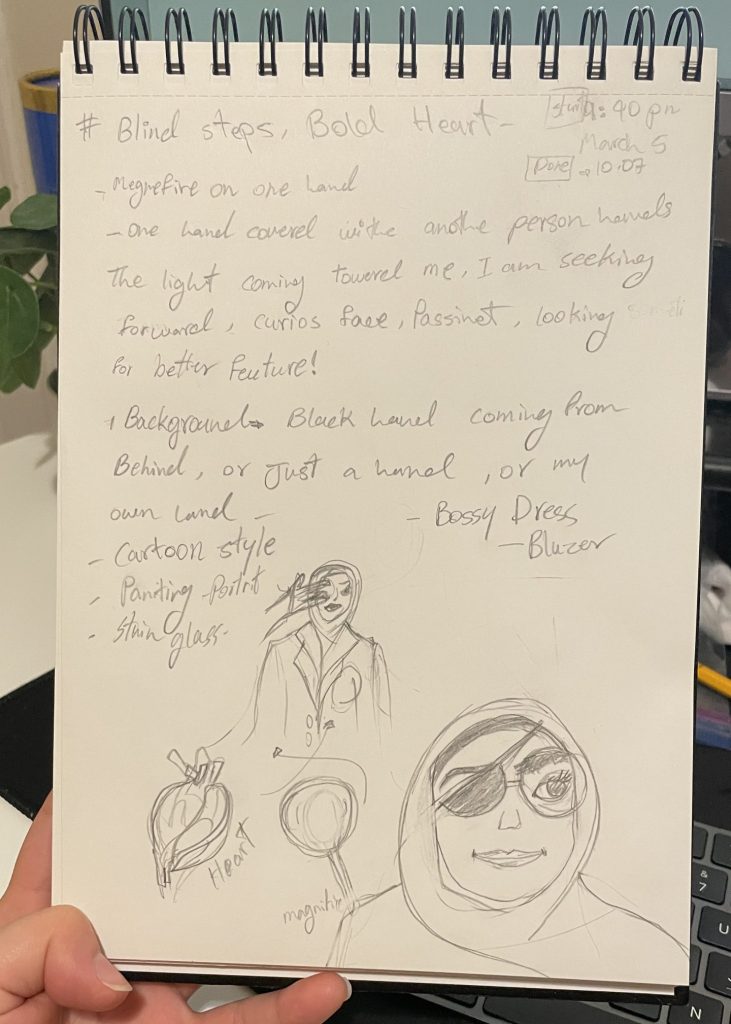 # Blind steps, Bold Heart -
Start 9:40 pm
March 5
Done → 10:07
- Megnefire on one hand
- one hand coverel withe anothe person hands
The light coming towerel me, I am seeking
forward, curios face, Passinet, looking
for better feuture!
Background → Black hand coming from
Behind, or Just a hand, or my
own hand -
- Bossy Dress
- Bluzer
- Cartoon style
- Panting Portrit
- stain glass-
Heart
magnifire
& 7
U
N